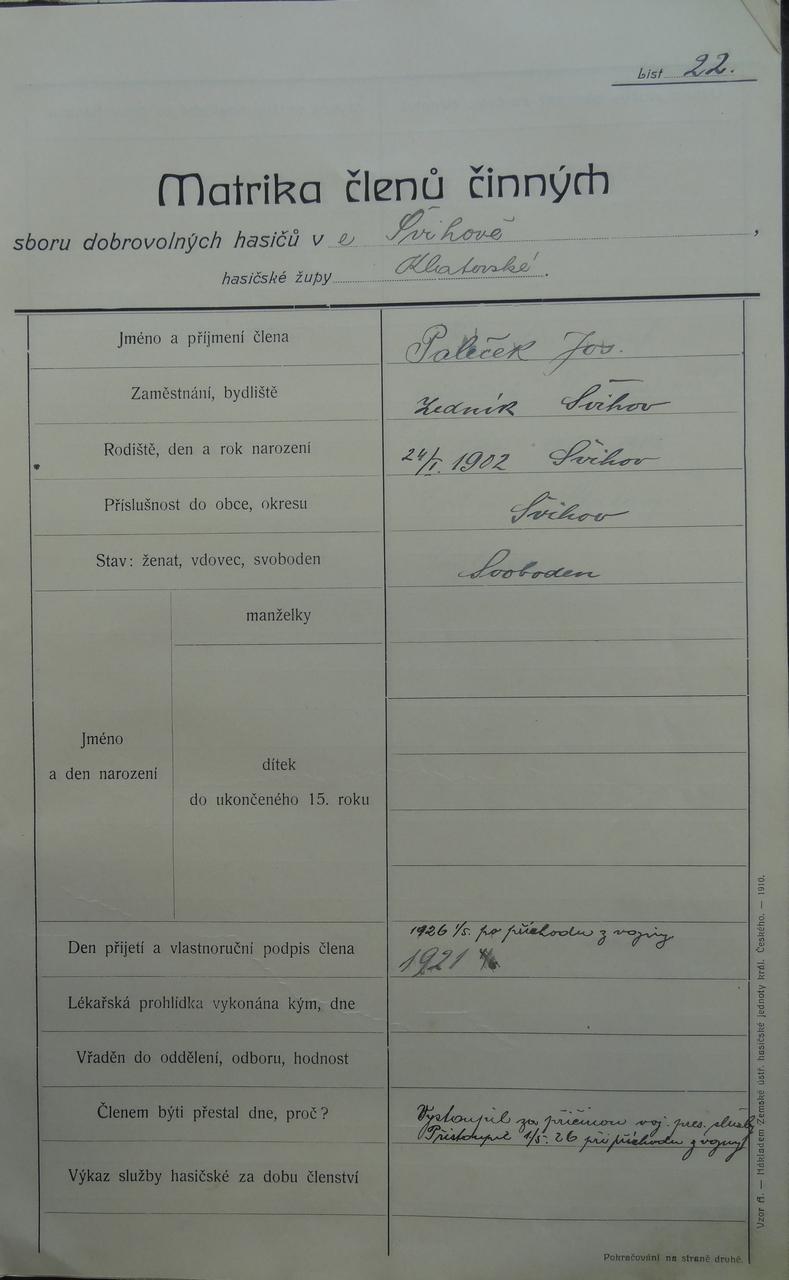 List 22.
Matrika členů činných
sboru dobrovolných hasičů v e Švihově,
hasičské župy Klatovské.
Jméno a příjmení člena Paleček Jos.
Zaměstnání, bydliště Zedník Švihov
Rodiště, den a rok narození 24/I. 1902 Švihov
Příslušnost do obce, okresu Švihov
Stav: ženat, vdovec, svoboden Svoboden
manželky
Jméno
a den narození
dítek
do ukončeného 15. roku
1926 1/5. po příchodu z vojny
Den přijetí a vlastnoruční podpis člena 1921
Lékařská prohlídka vykonána kým, dne
Vřaděn do oddělení, odboru, hodnost
Členem býti přestal dne, proč? Vystoupil za příčinou voj. pres. služby
Přistoupil 1/5. 26 při příchodu z vojny
Výkaz služby hasičské za dobu členství
Pokračování na straně druhé.
Vzor A. — Nákladem Zemské ústř. hasičské jednoty král. Českého. — 1910.